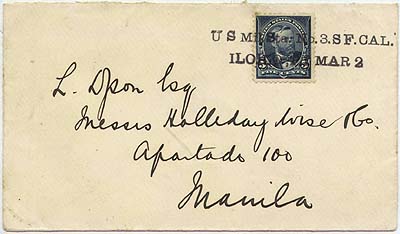 U S Mil. Sta. No. 3. S F. CAL.
ILOILO MAR 2
FIVE CENTS
L. Dyson Esq
Messrs Holliday Wise & Co.
Apartado 100
Manila